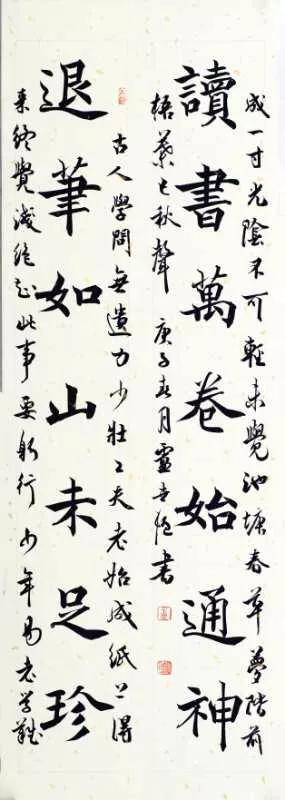 古人學問無遺力少壯工夫老始成紙上得
退筆如山未足珍
來終覺淺絕知此事要躬行 少年易老學難
成一寸光陰不可輕未覺池塘春草夢階前
讀書萬卷始通神
梧葉已秋聲 庚子春月 書